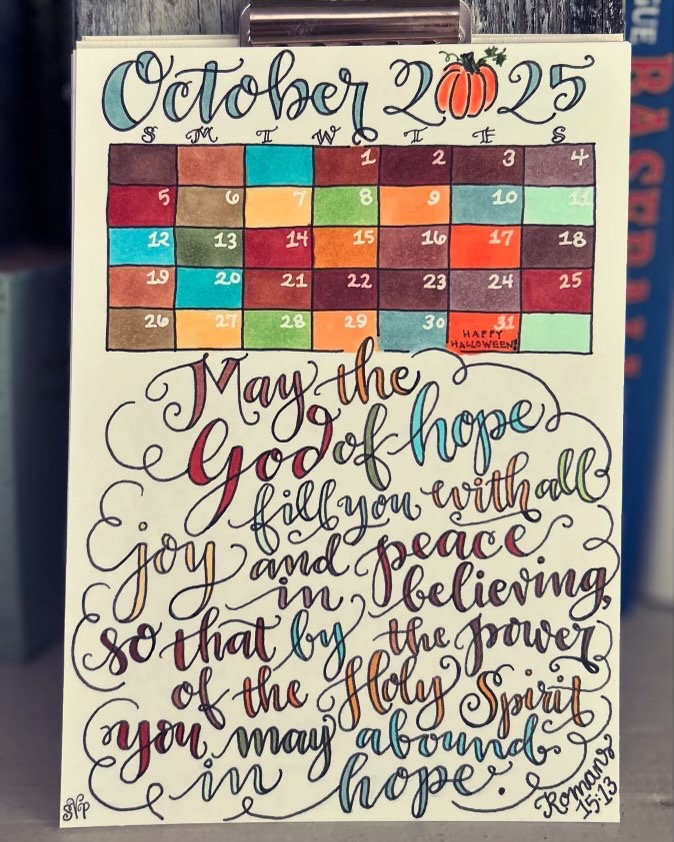 October 2025
S M T W T F S
1 2 3 4
5 6 7 8 9 10 11
12 13 14 15 16 17 18
19 20 21 22 23 24 25
26 27 28 29 30 31
HAPPY
HALLOWEEN!
May the
God of hope
fill you with all
joy and peace
in believing,
so that by the power
of the Holy Spirit
you may abound
in hope.
Romans
15:13